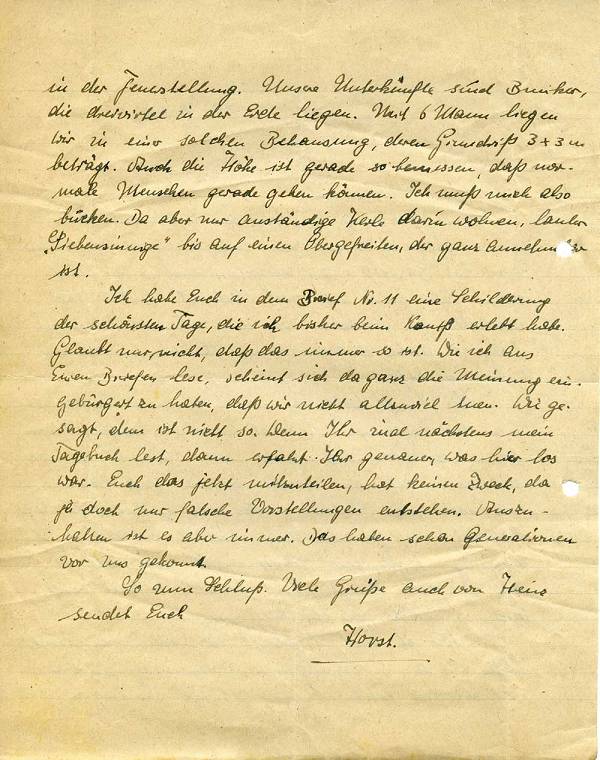 in der Feuerstellung. Unsere Unterkünfte sind Bunker,
die dreiviertel in der Erde liegen. Mit 6 Mann liegen
wir in einer solchen Behausung, deren Grundriß 3 x 3 m
beträgt. Auch die Höhe ist gerade so bemessen, daß nor-
male Menschen gerade gehen können. Ich muß mich also
bücken. Da aber nur anständige Kerle darin wohnen, lauter
bis auf einen Obergefreiten, der ganz annehmbar
ist.
Ich habe Euch in dem Brief No. 11 eine Schilderung
der schönsten Tage, die ich bisher beim erlebt habe.
Glaubt nur nicht, daß das immer so ist. Wie ich aus
Euren Briefen lese, scheint sich da ganz die Meinung ein-
gebürgert zu haben, daß wir nicht allzuviel tuen. Wie ge-
sagt, dem ist nicht so. Wenn Ihr mal nächstens mein
Tagebuch lest, dann erfahrt Ihr genauer, was hier los
war. Euch das jetzt mitzuteilen, hat keinen Zweck, da
ja doch nur falsche Vorstellungen entstehen. Auszu-
halten ist es aber immer. Das haben schon Generationen
vor uns gekonnt.
So zum Schluß. Viele Grüße auch von Heinz
sendet Euch
Horst.